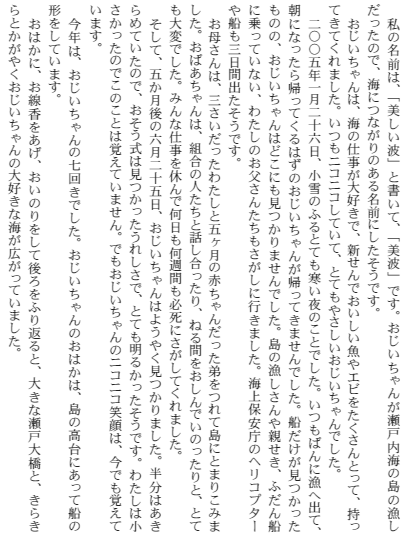 私の名前は、「美しい波」と書いて、「美波」です。おじいちゃんが瀬戸内海の島の漁し
だったので、海につながりのある名前にしたそうです。
おじいちゃんは、海の仕事が大好きで、新せんでおいしい魚やエビをたくさんとって、持っ
てきてくれました。いつもニコニコしていて、とてもやさしいおじいちゃんでした。
二〇〇五年一月二十六日、小雪のふるとても寒い夜のことでした。いつもばんに漁へ出て、
朝になったら帰ってくるはずのおじいちゃんが帰ってきませんでした。船だけが見つかった
ものの、おじいちゃんはどこにも見つかりませんでした。島の漁しさんや親せき、ふだん船
に乗っていない、わたしのお父さんたちもさがしに行きました。海上保安庁のヘリコプター
や船も三日間出たそうです。
お母さんは、三さいだったわたしと五ヶ月の赤ちゃんだった弟をつれて島にとまりこみま
した。おばあちゃんは、組合の人たちと話し合ったり、ねる間をおしんでいのったりと、とて
も大変でした。みんな仕事を休んで何日も何週間も必死にさがしてくれました。
そして、五か月後の六月二十五日、おじいちゃんはようやく見つかりました。半分はあき
らめていたので、おそう式は見つかったうれしさで、とても明るかったそうです。わたしは小
さかったのでこのことは覚えていません。でもおじいちゃんのニコニコ笑顔は、今でも覚えて
います。
今年は、おじいちゃんの七回きでした。おじいちゃんのおはかは、島の高台にあって船の
形をしています。
おはかに、お線香をあげ、おいのりをして後ろをふり返ると、大きな瀬戸大橋と、きらき
らとかがやくおじいちゃんの大好きな海が広がっていました。